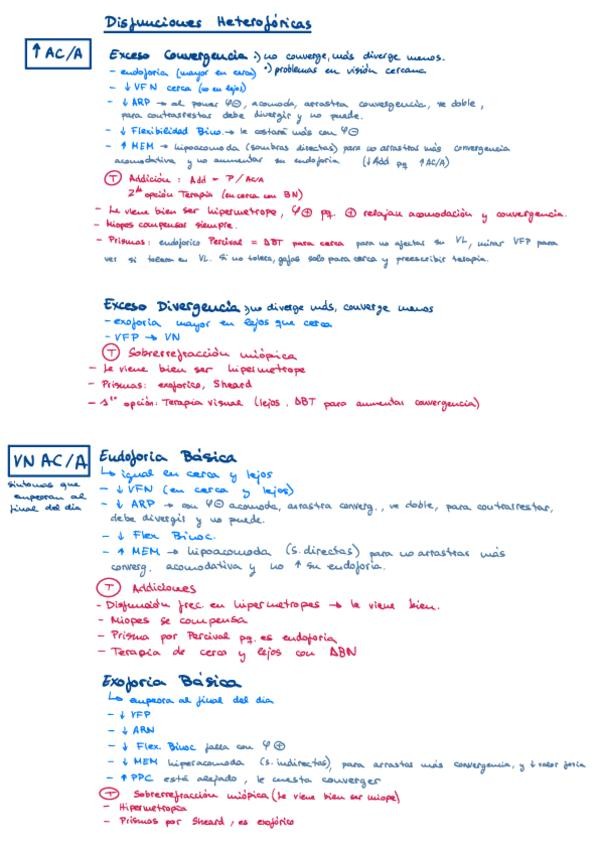 Disfunciones Heterofóricas
↑ AC/A
Exceso Convergencia :) no converge, más diverge menos.
- endoforia (mayor en cerca) •) problemas en visión cercana
- ↓ VFN cerca (no en lejos)
- ↓ ARP → al poner φ⊖, acomoda, arrastra convergencia, ve doble,
para contrarrestar debe divergir y no puede.
- ↓ Flexibilidad Bino. → le costará más con φ⊖
- ↑ MEM → hipoacomoda (sombras directas) para no arrastrar más convergencia
acomodativa y no aumentar su endoforia (↓Add pq ↑AC/A)
Ⓣ Addición: Add = P/AC/A
2ª opción Terapia (en cerca con BN)
- Le viene bien ser hipermetrope, φ⊕ pq. ⊕ relajan acomodación y convergencia.
- Miopes compensar siempre.
- Prismas: endofórico Percival = ΔBT para cerca para no afectar su VL, mirar VFP para
ver si toleran en VL. Si no tolera, gafas solo para cerca y preescribir terapia.
Exceso Divergencia ;) no diverge más, converge menos
- exoforia mayor en lejos que cerca
- VFP → VN
Ⓣ Sobrerrefracción miópica
- Le viene bien ser hipermetrope
- Prismas: exofórico, Sheard
- 1ª opción: Terapia visual (lejos. ΔBT para aumentar convergencia)
VN AC/A
síntomas que
empeoran al
final del día
Endoforia Básica
↳ igual en cerca y lejos
- ↓ VFN (en cerca y lejos)
- ↓ ARP → con φ⊖ acomoda, arrastra converg., ve doble, para contrarrestar,
debe divergir y no puede.
- ↓ Flex Binoc.
- ↑ MEM → hipoacomoda (s. directas) para no arrastrar más
converg. acomodativa y no ↑ su endoforia.
Ⓣ Addiciones
- Disfunción frec. en hipermetropes → le viene bien.
- Miopes se compensa
- Prisma por Percival pq. es endoforia
- Terapia de cerca y lejos con ΔBN
Exoforia Básica
↳ empeora al final del día
- ↓ VFP
- ↓ ARN
- ↓ Flex. Binoc falla con φ⊕
- ↓ MEM hiperacomoda (s. indirectas), para arrastrar más convergencia, y ↓ valor foria
- ↑ PPC está alejado, le cuesta converger
Ⓣ Sobrerrefracción miópica (le viene bien ser miope)
- Hipermetropía
- Prismas por Sheard, es exofórico